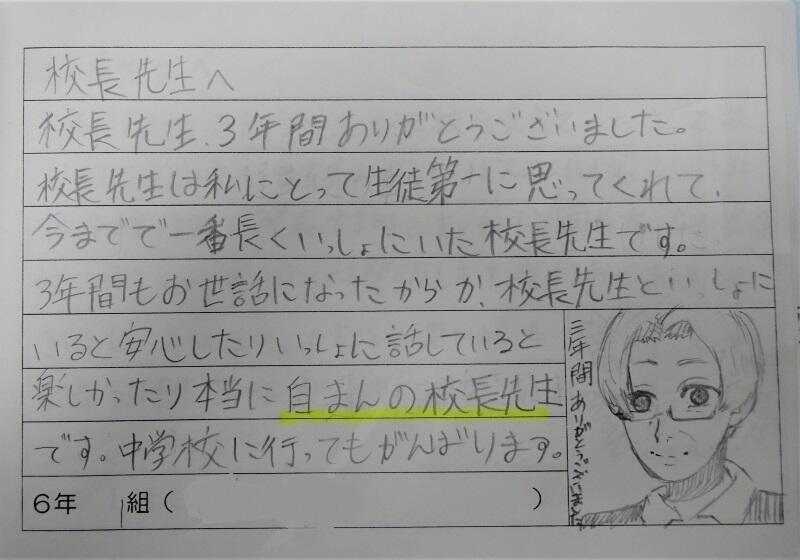 校長先生へ
校長先生、3年間ありがとうございました。
校長先生は私にとって生徒第一に思ってくれて、
今までで一番長くいっしょにいた校長先生です。
3年間もお世話になったからか、校長先生といっしょに
いると安心したりいっしょに話していると
楽しかったり本当に自まんの校長先生
です。中学校に行ってもがんばります。
三年間ありがとうございました
6年 1組（ ）